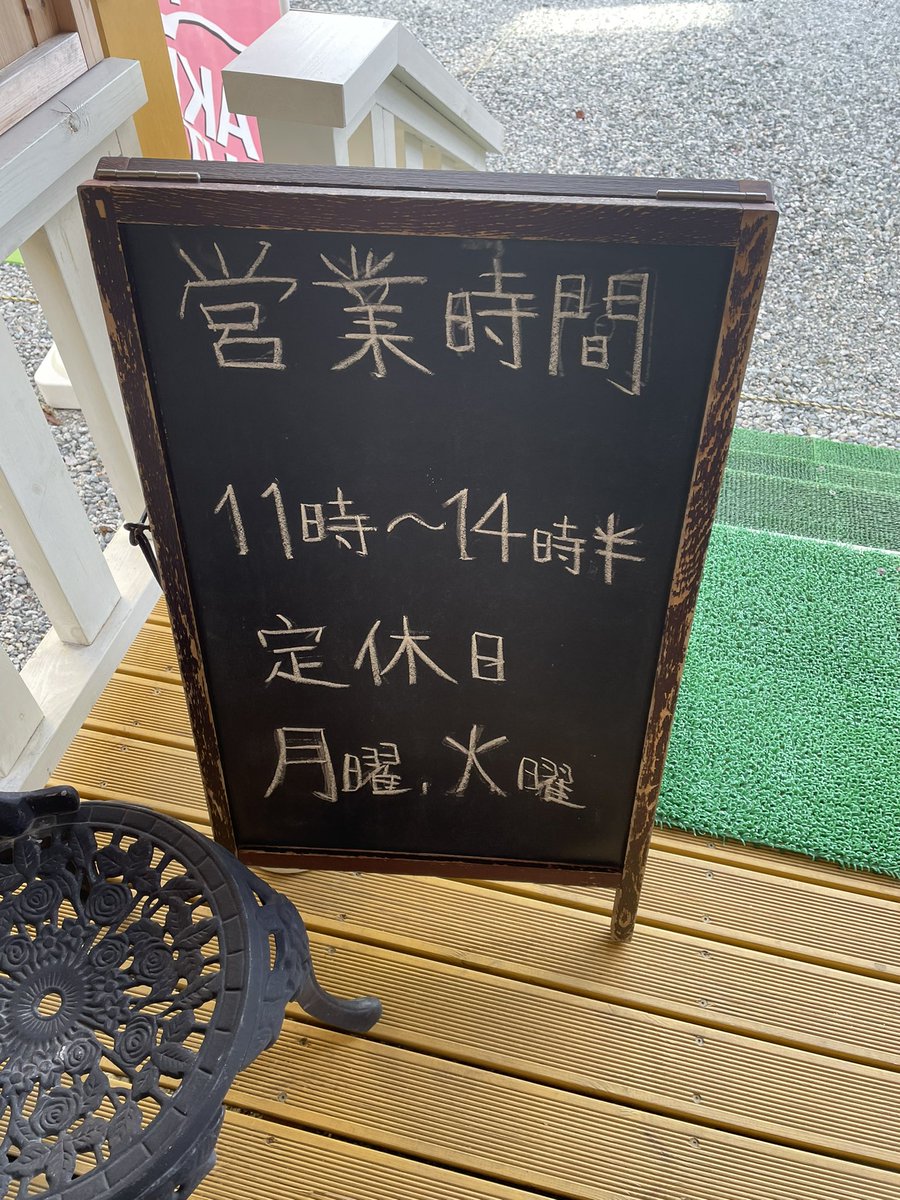 営業時間
11時〜14時半
定休日
月曜,火曜